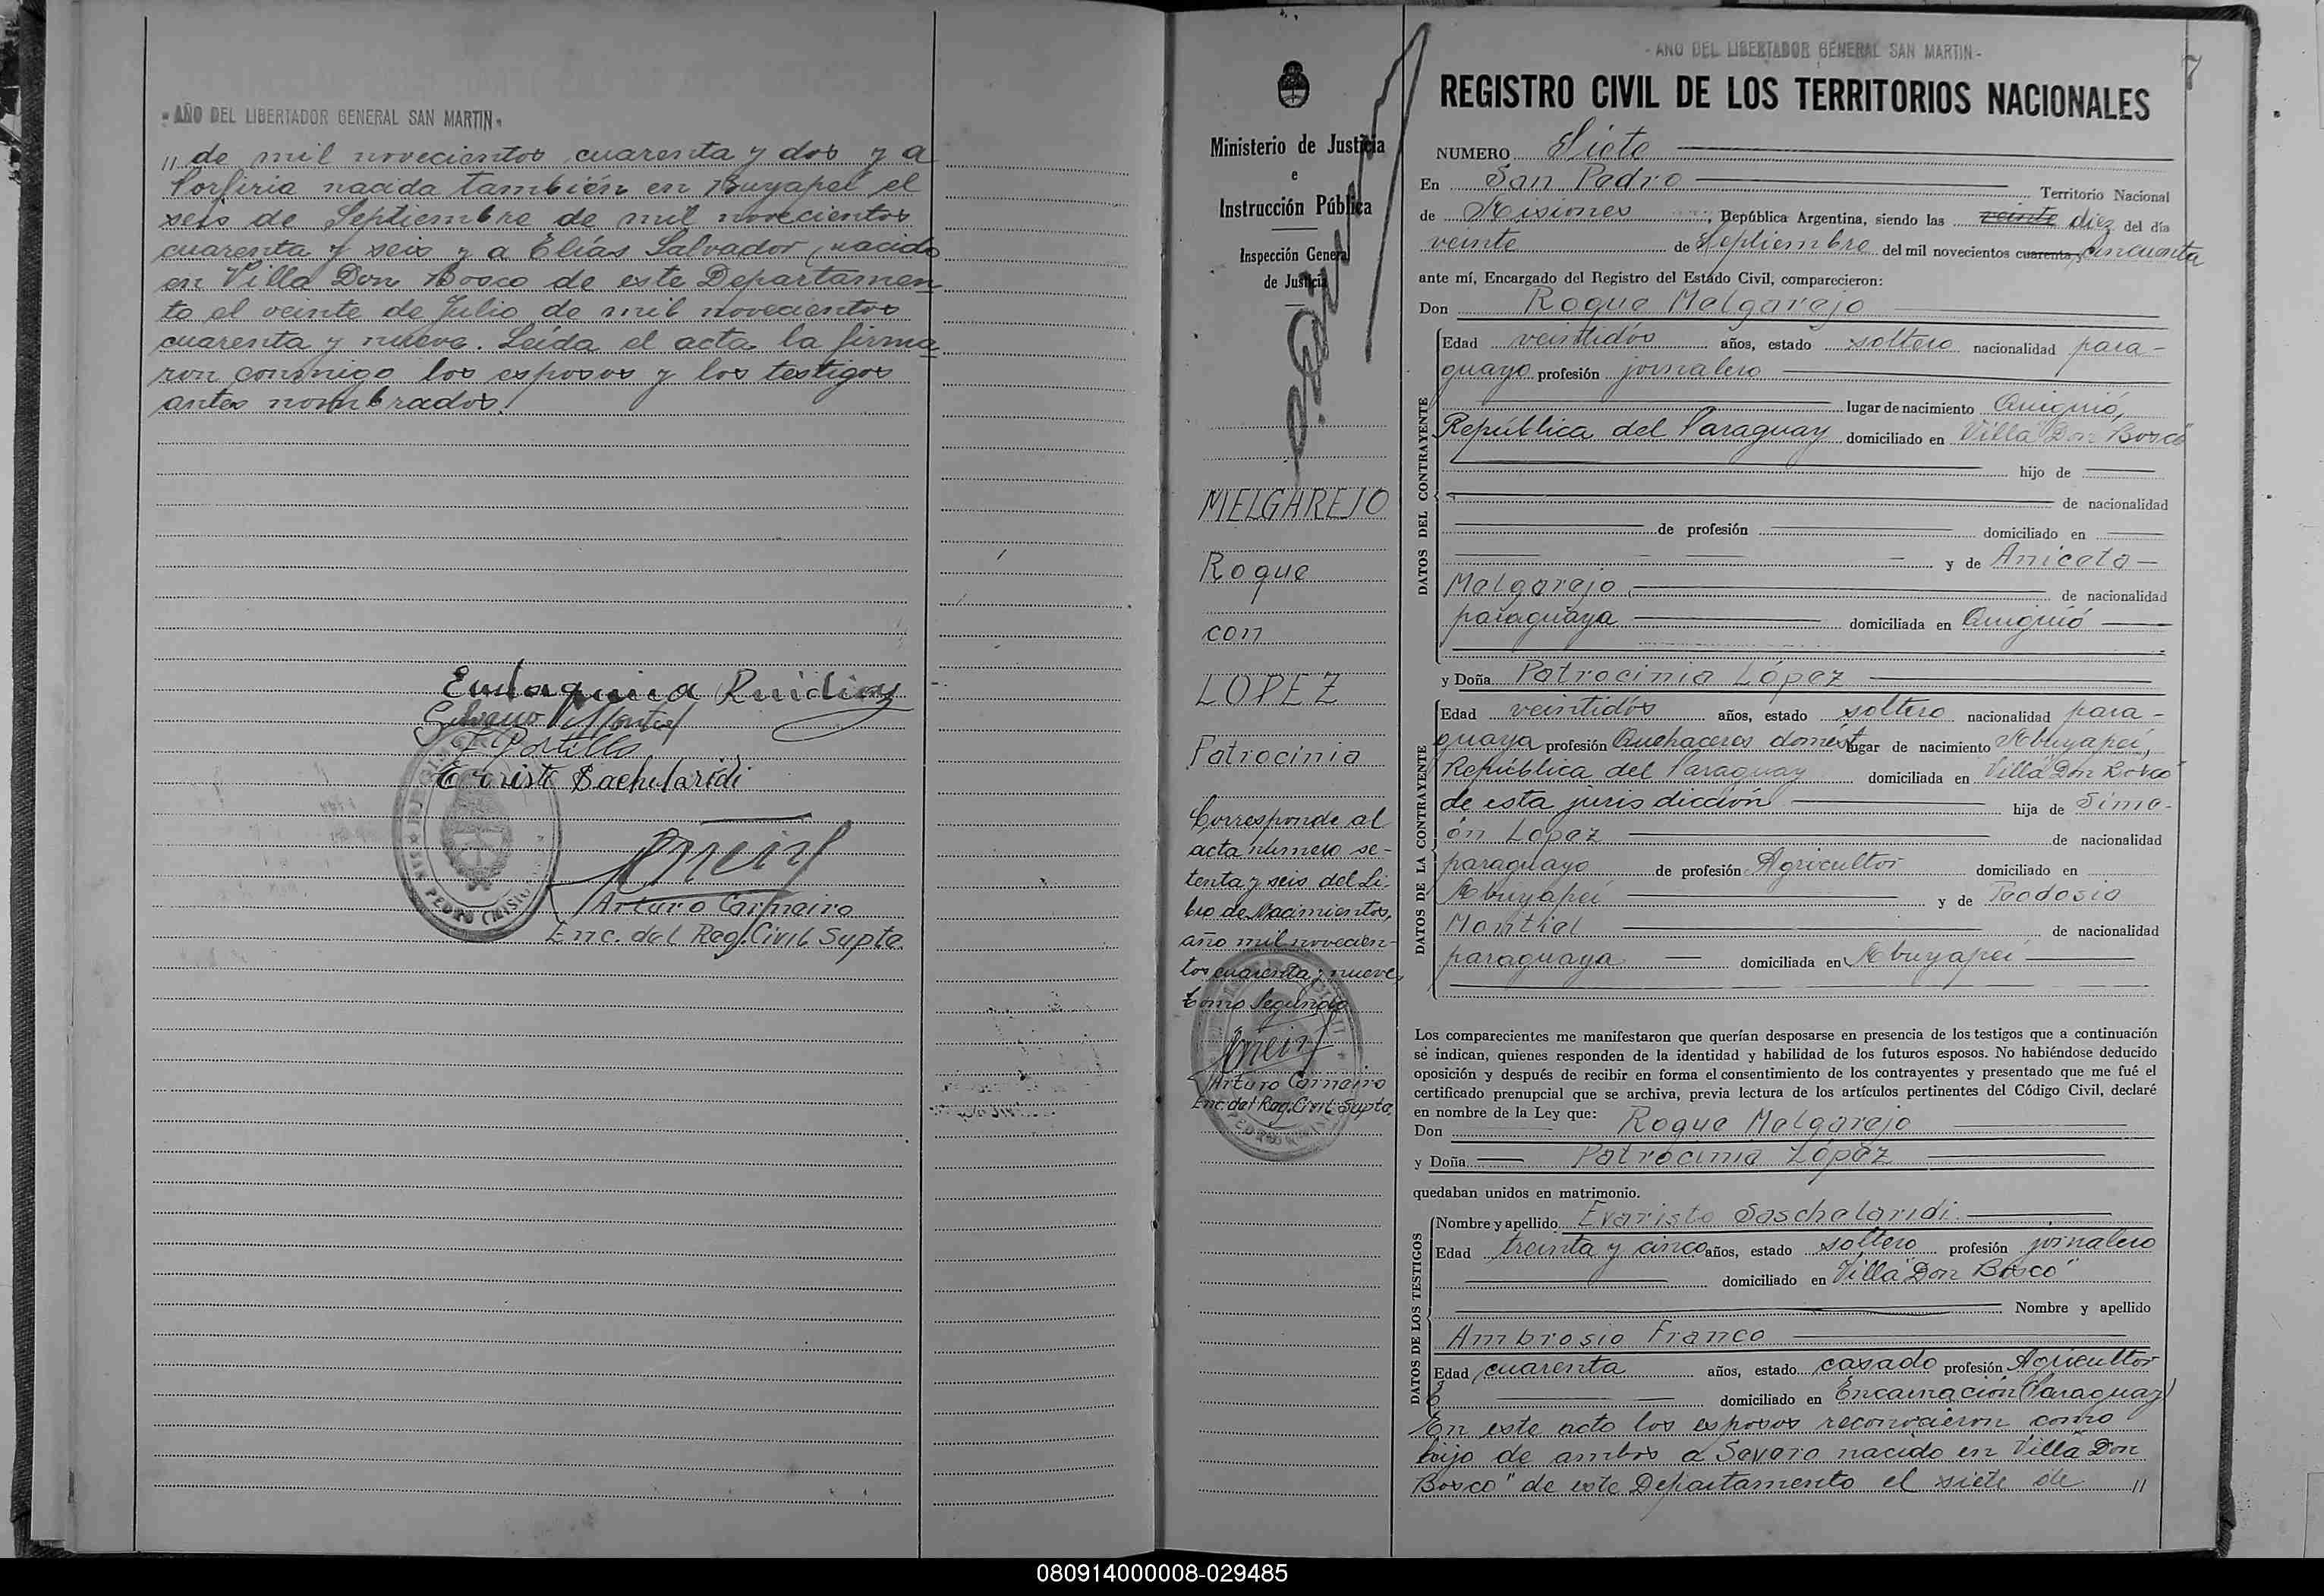 - AÑO DEL LIBERTADOR GENERAL SAN MARTIN -
" de mil novecientos cuarenta y dos y a
Porfiria nacida también en Buyapei el
seis de Septiembre de mil novecientos
cuarenta y seis y a Elías Salvador nacido
en Villa Don Bosco de este Departamen
to el veinte de Julio de mil novecientos
cuarenta y nueve. Leída el acta la firma
ron conmigo los esposos y los testigos
antes nombrados.
Eudaquina Ruidiaz
Silvano Montiel
Portillo
Evaristo Sachelaridi
SAN PEDRO (MISIONES)
Arturo Carneiro
Enc. del Reg. Civil Supte.
Ministerio de Justicia
e
Instrucción Pública
Inspección General
de Justicia
MELGAREJO
Roque
con
LOPEZ
Patrocinia
Corresponde al
acta número se-
tenta y seis del Li-
bro de Nacimientos,
año mil novecien-
tos cuarenta y nueve,
tomo Segundo
Arturo Carneiro
Enc. del Reg. Civil Supte.
- AÑO DEL LIBERTADOR GENERAL SAN MARTIN -
7
REGISTRO CIVIL DE LOS TERRITORIOS NACIONALES
NUMERO Siete
En San Pedro Territorio Nacional
de Misiones, República Argentina, siendo las veinte diez del día
veinte de Septiembre del mil novecientos cuarenta y cincuenta
ante mí, Encargado del Registro del Estado Civil, comparecieron:
Don Roque Melgarejo
DATOS DEL CONTRAYENTE
Edad veintidós años, estado soltero nacionalidad para-
guayo profesión jornalero
lugar de nacimiento Quiquió,
República del Paraguay domiciliado en Villa "Don Bosco"
hijo de
de nacionalidad
de profesión domiciliado en
y de Aniceta
Melgarejo de nacionalidad
paraguaya domiciliada en Quiquió
y Doña Patrocinia López
DATOS DE LA CONTRAYENTE
Edad veintidós años, estado soltero nacionalidad para-
guaya profesión Quehaceres domést. lugar de nacimiento Mbuyapeí,
República del Paraguay domiciliada en Villa "Don Bosco"
de esta jurisdicción hija de Sime-
ón López de nacionalidad
paraguayo de profesión Agricultor domiciliado en
Mbuyapeí y de Teodosia
Montiel de nacionalidad
paraguaya domiciliada en Mbuyapeí
Los comparecientes me manifestaron que querían desposarse en presencia de los testigos que a continuación
se indican, quienes responden de la identidad y habilidad de los futuros esposos. No habiéndose deducido
oposición y después de recibir en forma el consentimiento de los contrayentes y presentado que me fué el
certificado prenupcial que se archiva, previa lectura de los artículos pertinentes del Código Civil, declaré
en nombre de la Ley que:
Don Roque Melgarejo
y Doña Patrocinia López
quedaban unidos en matrimonio.
DATOS DE LOS TESTIGOS
Nombre y apellido Evaristo Saschelaridi
Edad treinta y cinco años, estado soltero profesión jornalero
domiciliado en Villa "Don Bosco"
Nombre y apellido
Ambrosio Franco
Edad cuarenta años, estado casado profesión Agricultor
domiciliado en Encarnación (Paraguay)
En este acto los esposos reconocieron como
hijo de ambos a Severo nacido en Villa "Don
Bosco" de este Departamento el siete de "
080914000008-029485